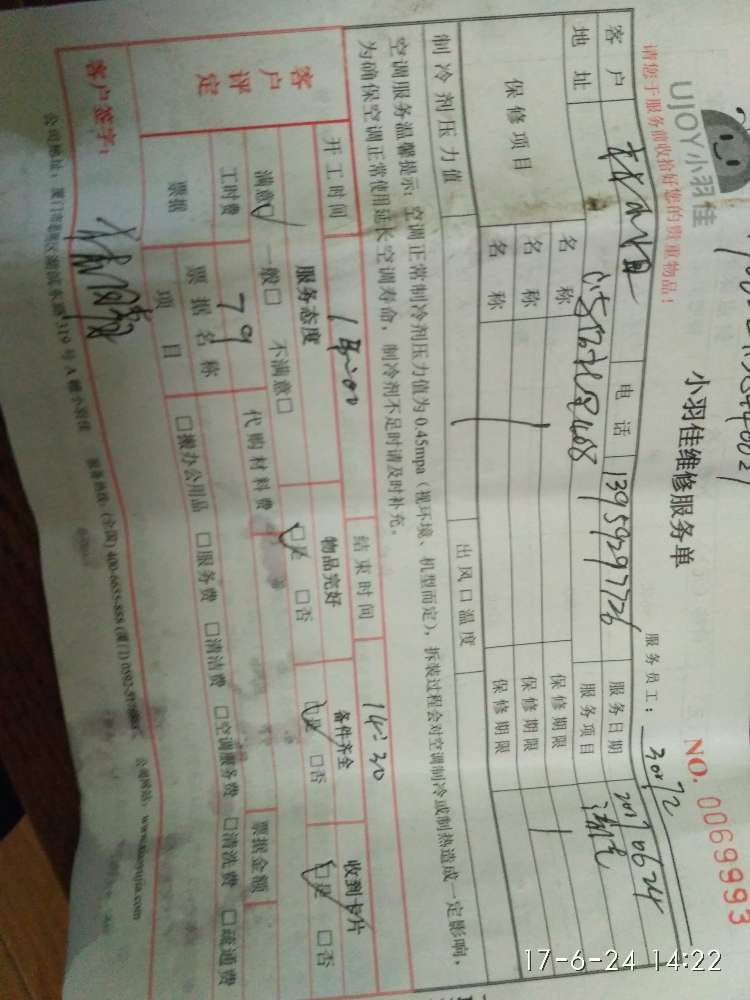 UJOY小羽佳
小羽佳维修服务单
NO. 0069993
请您于服务前收拾好您的贵重物品！
服务员工： 30172
客户 电话 13959297726 服务日期 20170624
地址 408 服务项目
保修项目 名称 保修期限
名称 保修期限
名称 保修期限
制冷剂压力值 出风口温度
空调服务温馨提示：空调正常制冷剂压力值为0.45mpa（视环境、机型而定），拆装过程会对空调制冷或制热造成一定影响，
为确保空调正常使用延长空调寿命，制冷剂不足时请及时补充。
开工时间 结束时间 14:20
客户评定 服务态度 物品完好 备件齐全 收到卡片
满意☑ 一般□ 不满意□ ☑是 □否 ☑是 □否 ☑是 □否
工时费 79 代购材料费
票据 票据名称 票据金额
项目 □搬办公用品 □服务费 □清洁费 □空调服务费 □清洗费 □疏通费
客户签字：
公司地址：厦门市湖滨东路319号A幢小羽佳 服务热线：(全国) 400-6655-888 (厦门) 公司网站：www.xiaoyujia.com
17-6-24 14:22